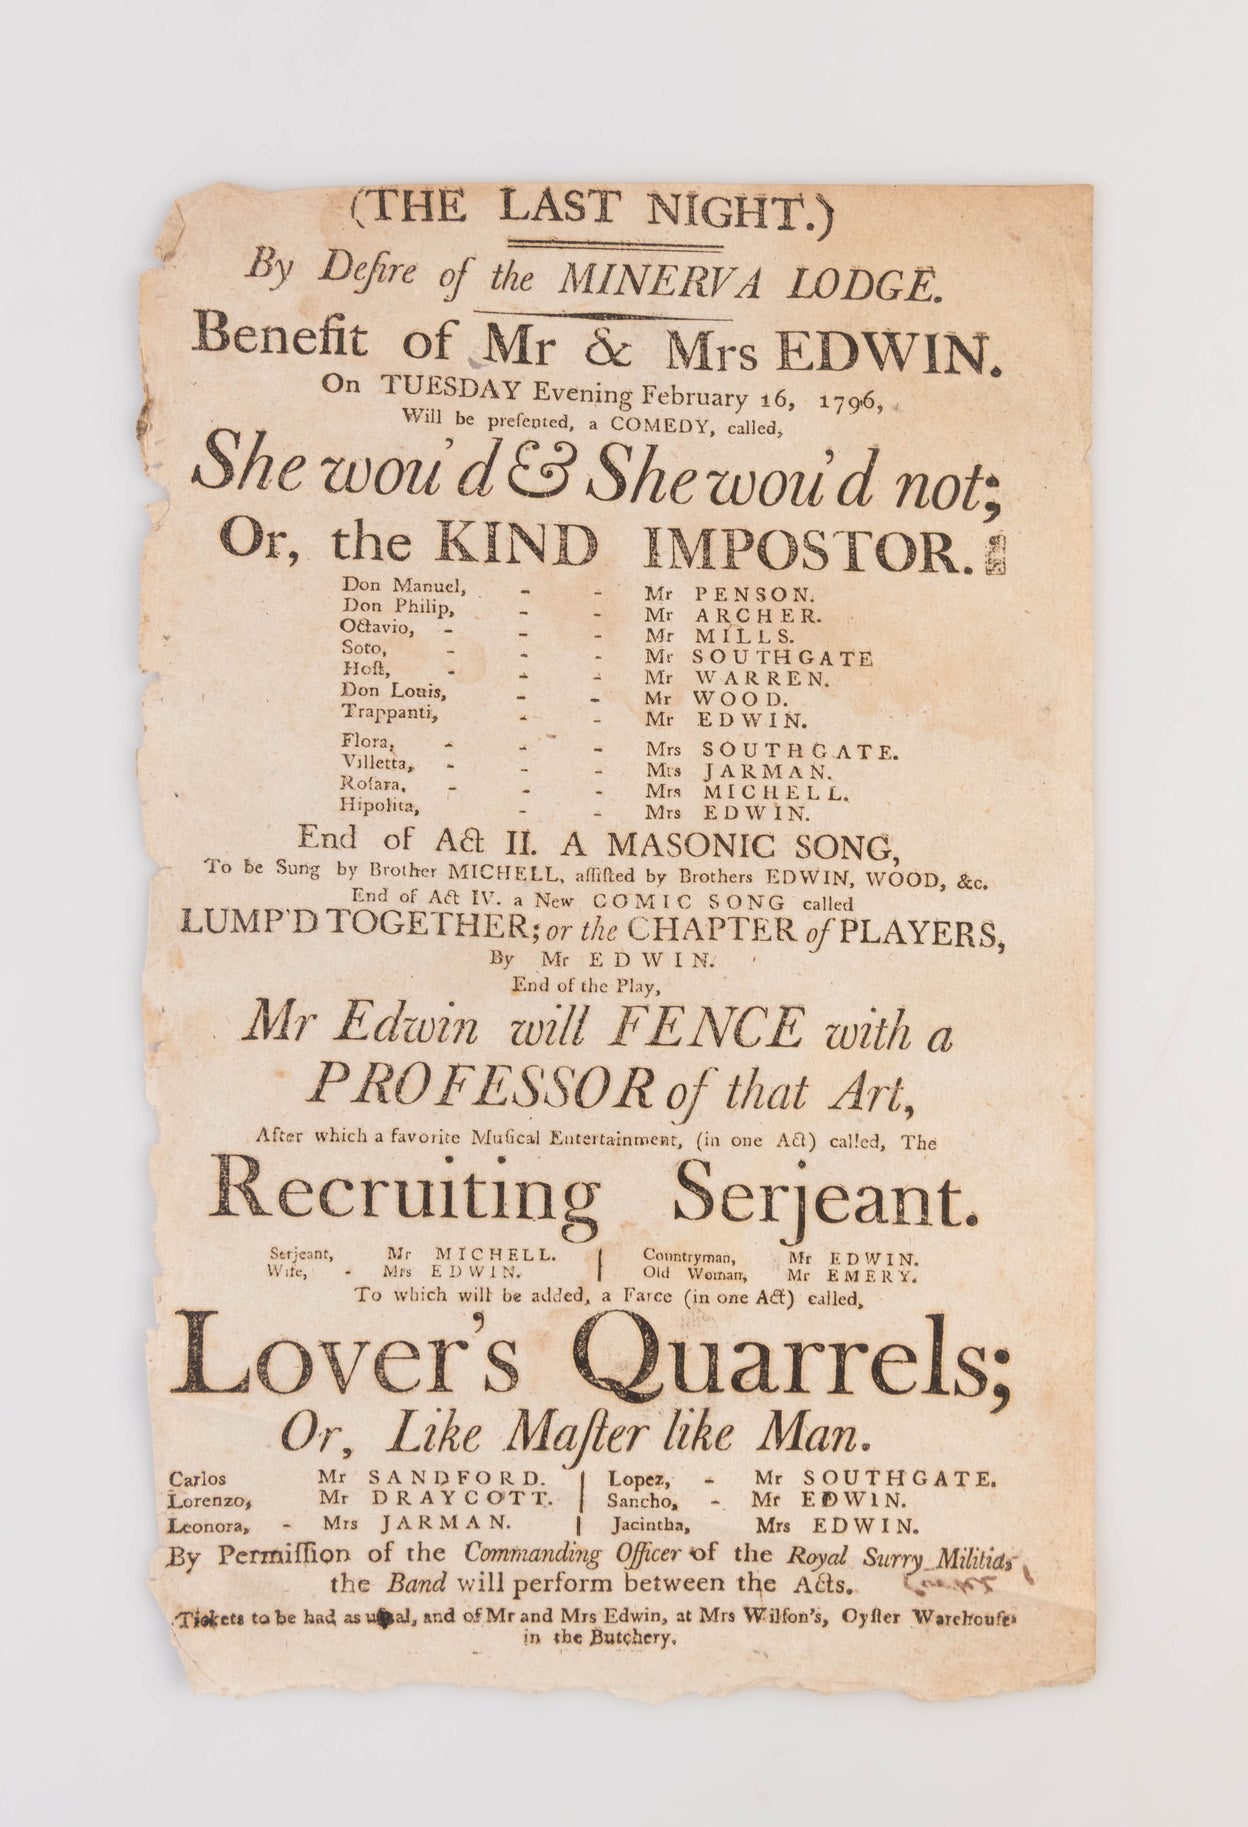 (THE LAST NIGHT.)
By Deſire of the MINERVA LODGE.
Benefit of Mr & Mrs EDWIN.
On TUESDAY Evening February 16, 1796,
Will be preſented, a COMEDY, called,
She wou'd & She wou'd not;
Or, the KIND IMPOSTOR.
Don Manuel, - - Mr PENSON.
Don Philip, - - Mr ARCHER.
Octavio, - - - Mr MILLS.
Soto, - - - Mr SOUTHGATE
Hoſt, - - - Mr WARREN.
Don Louis, - - Mr WOOD.
Trappanti, - - Mr EDWIN.
Flora, - - - Mrs SOUTHGATE.
Villetta, - - - Mrs JARMAN.
Roſara, - - - Mrs MICHELL.
Hipolita, - - Mrs EDWIN.
End of Act II. A MASONIC SONG,
To be Sung by Brother MICHELL, aſſiſted by Brothers EDWIN, WOOD, &c.
End of Act IV. a New COMIC SONG called
LUMP'D TOGETHER; or the CHAPTER of PLAYERS,
By Mr EDWIN.
End of the Play,
Mr Edwin will FENCE with a
PROFESSOR of that Art,
After which a favorite Muſical Entertainment, (in one Act) called, The
Recruiting Serjeant.
Serjeant, Mr MICHELL. | Countryman, Mr EDWIN.
Wife, - Mrs EDWIN. | Old Woman, Mr EMERY.
To which will be added, a Farce (in one Act) called,
Lover's Quarrels;
Or, Like Maſter like Man.
Carlos Mr SANDFORD. | Lopez, - Mr SOUTHGATE.
Lorenzo, Mr DRAYCOTT. | Sancho, - Mr EDWIN.
Leonora, - Mrs JARMAN. | Jacintha, Mrs EDWIN.
By Permiſſion of the Commanding Officer of the Royal Surry Militia,
the Band will perform between the Acts.
Tickets to be had as uſual, and of Mr and Mrs Edwin, at Mrs Wilſon's, Oyſter Warehouſe
in the Butchery.